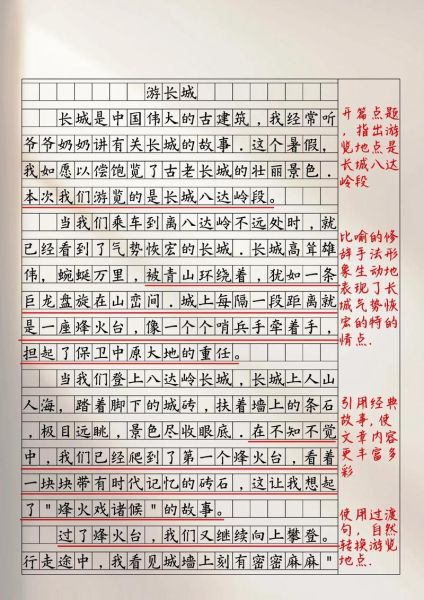 游长城
长城是中国伟大的古建筑，我经常听
爷爷奶奶讲有关长城的故事．这个暑假，
我如愿以偿饱览了古老长城的壮丽景色．
本次我们游览的是长城八达岭段。
当我们乘车到离八达岭不远处时，就
已经看到了气势恢宏的长城．长城高耸雄
伟，蜿蜒万里，被青山环绕着，犹如一条
巨龙盘旋在山峦间．城上每隔一段距离就
是一座烽火台，像一个个哨兵手牵着手，
担起了保卫中原大地的重任。
当我们登上八达岭长城，长城上人山
人海，踏着脚下的城砖，扶着墙上的条石
，极目远眺，景色尽收眼底．在不知不觉
中，我们已经爬到了第一个烽火台，看着
一块块带有时代记忆的砖石，这让我想起
了"烽火戏诸候"的故事。
过了烽火台，我们又继续向上攀登。
行走途中，我看见城墙上刻有密密麻麻"
开篇点题
，指出游
览地点是
长城八达
岭段
比喻的修
辞手法形
象生动地
表现了长
城气势恢
宏的特的
情点．
引用经典
故事，使
文章内容
更丰富多
彩
使用过渡
句，自然
转换游览
地点．